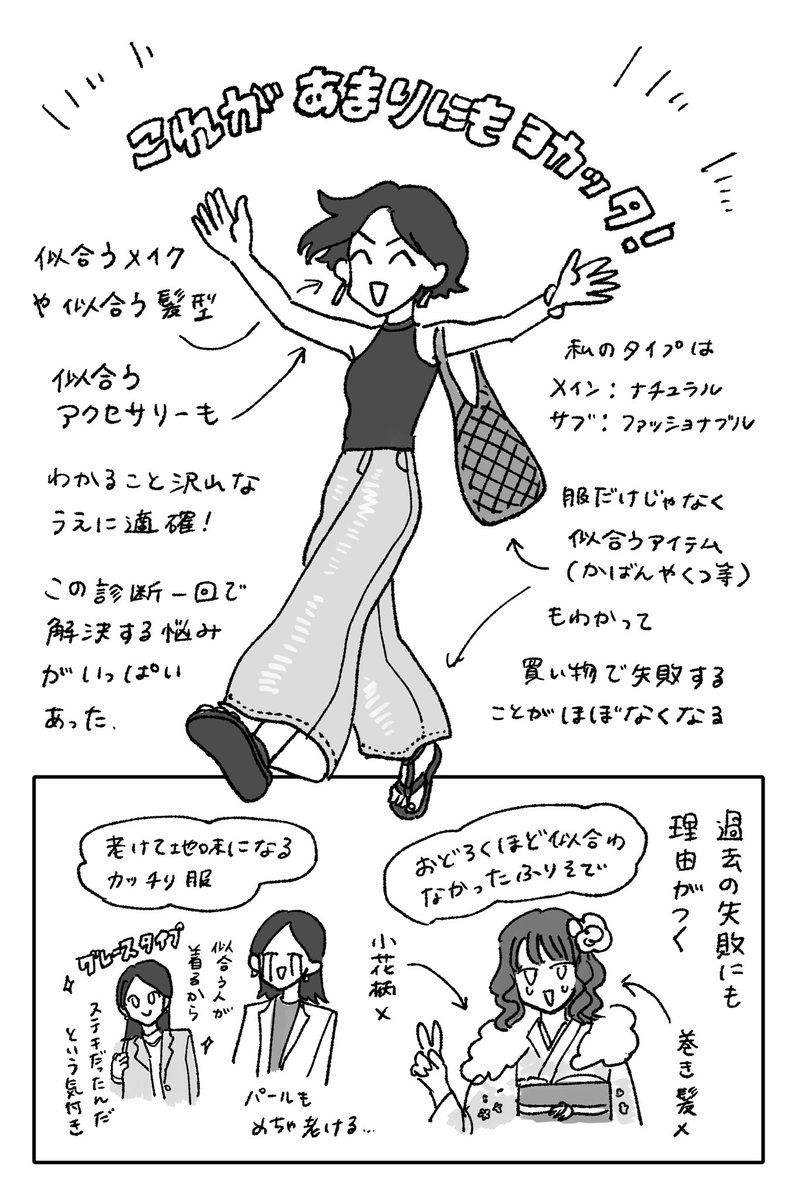 これがあまりにもヨカッタ!
似合うメイク
や似合う髪型
似合う
アクセサリーも
わかること沢山な
うえに適確!
この診断一回で
解決する悩み
がいっぱい
あった.
私のタイプは
メイン:ナチュラル
サブ:ファッショナブル
服だけじゃなく
似合うアイテム
(かばんやくつ等)
もわかって
買い物で失敗する
ことがほぼなくなる
過去の失敗にも
理由がつく
おどろくほど似合わ
なかったふりそで
小花柄×
巻き髪×
老けて地味になる
カッチリ服
似合う人が
着るから
パールも
めちゃ老ける…
グレースタイプ
ステキだったんだ
という気付き